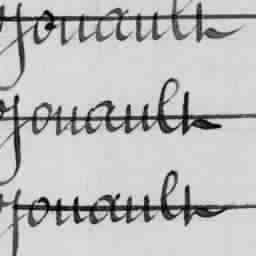 Jouault
Jouault
Jouault